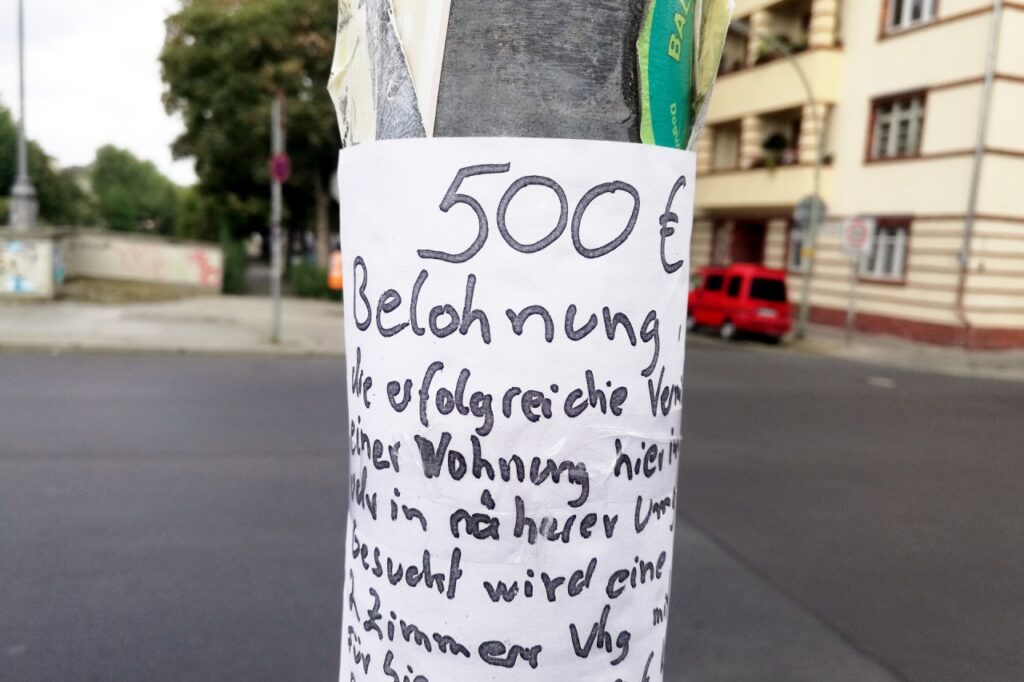 500 €
Belohnung
die erfolgreiche
einer Wohnung hier
oder in näherer Umg
Gesucht wird eine
2 Zimmer Vhg
für
BAL